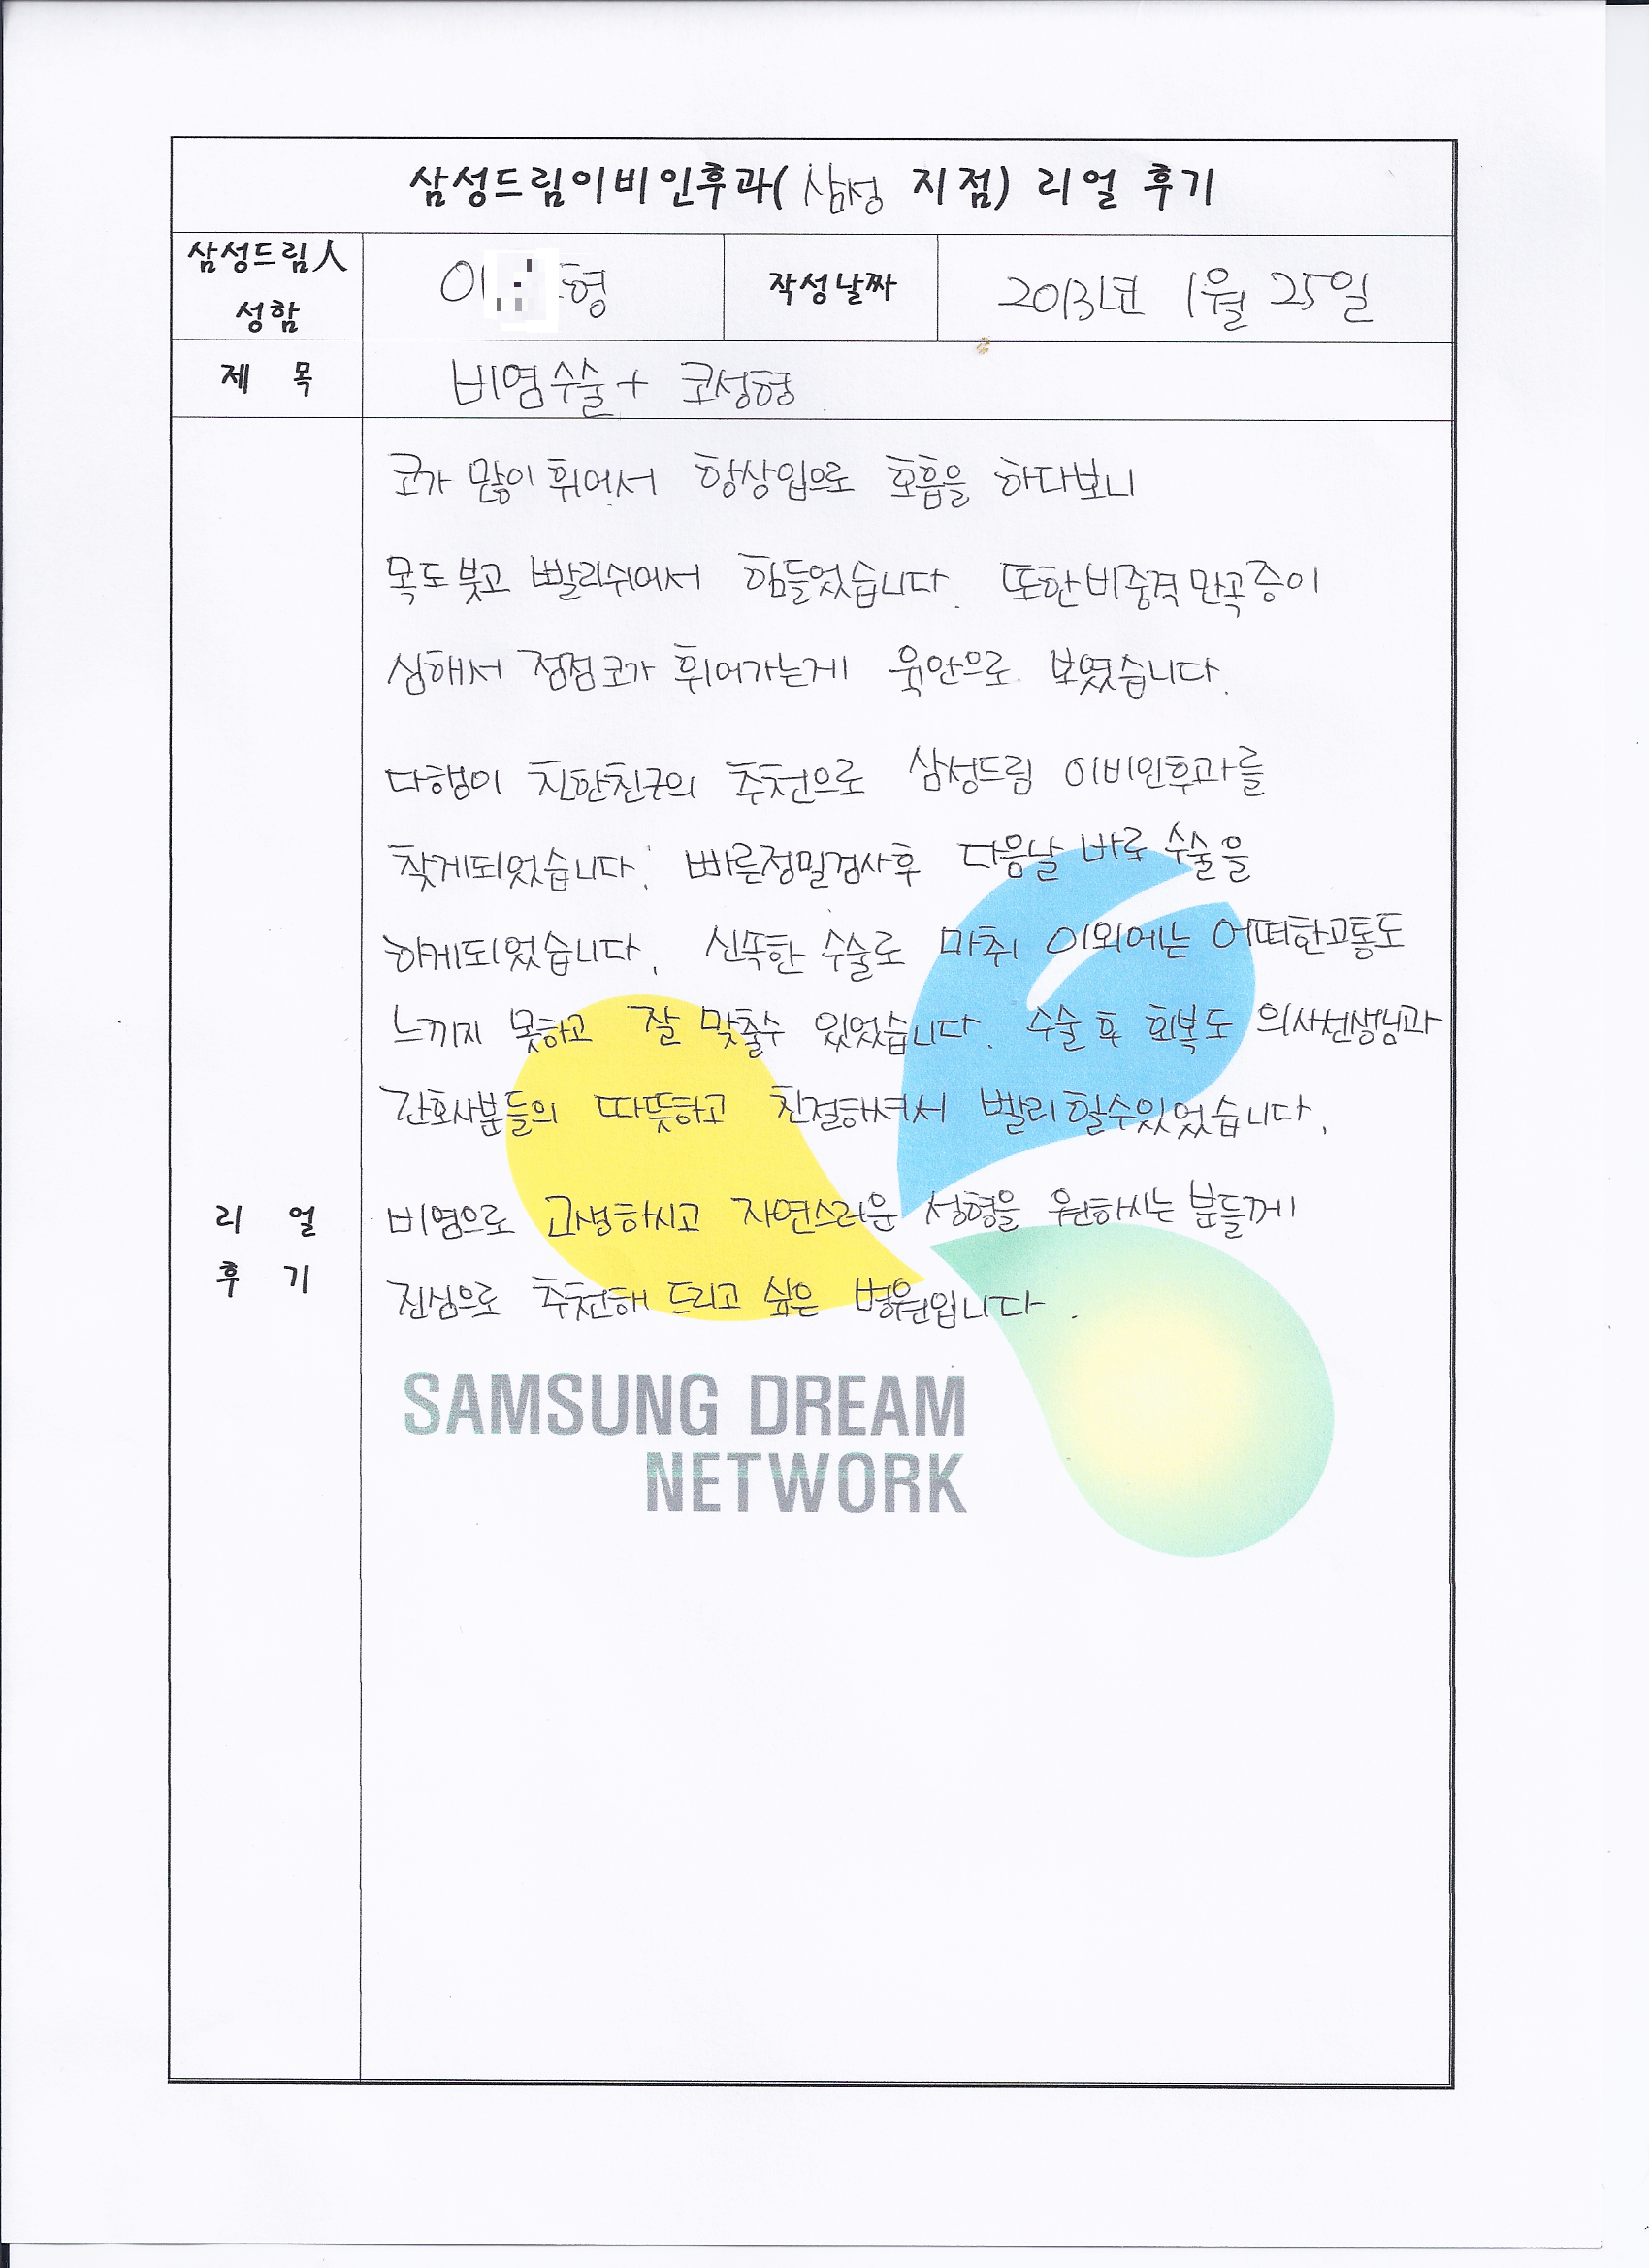 삼성드림이비인후과( 삼성 지점) 리얼 후기
삼성드림人 성함 이 형 작성날짜 2013년 1월 25일
제 목 비염수술 + 코성형
코가 많이 휘어서 항상입으로 호흡을 하다보니
목도붓고 빨리쉬어서 힘들었습니다. 또한비중격만곡증이
심해서 점점코가 휘어가는게 육안으로 보였습니다.
다행이 친한친구의 추천으로 삼성드림 이비인후과를
찾게되었습니다. 빠른정밀검사후 다음날 바로 수술을
하게되었습니다. 신속한 수술로 마취 이외에는 어떠한고통도
느끼지 못하고 잘 맞출수 있었습니다. 수술 후 회복도 의사선생님과
간호사분들의 따뜻하고 친절해셔서 빨리할수있었습니다.
리 얼 후 기
비염으로 고생하시고 자연스러운 성형을 원하시는 분들께
진심으로 추천해 드리고 싶은 병원입니다.
SAMSUNG DREAM
NETWORK